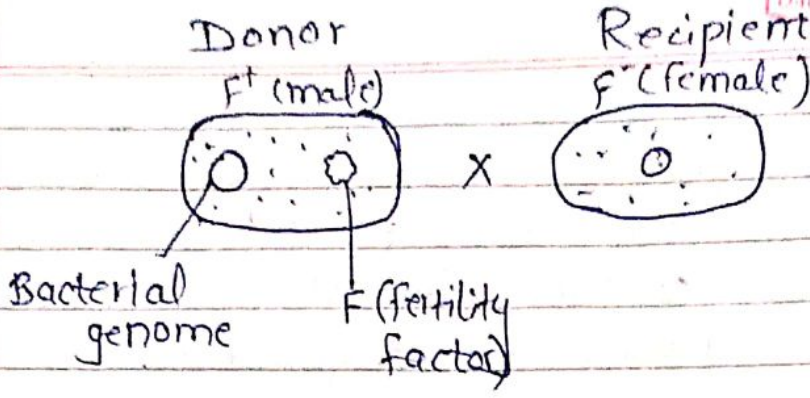 Donor
F⁺ (male)
Recipient
F⁻ (female)
X
Bacterial
genome
F (fertility
factor)